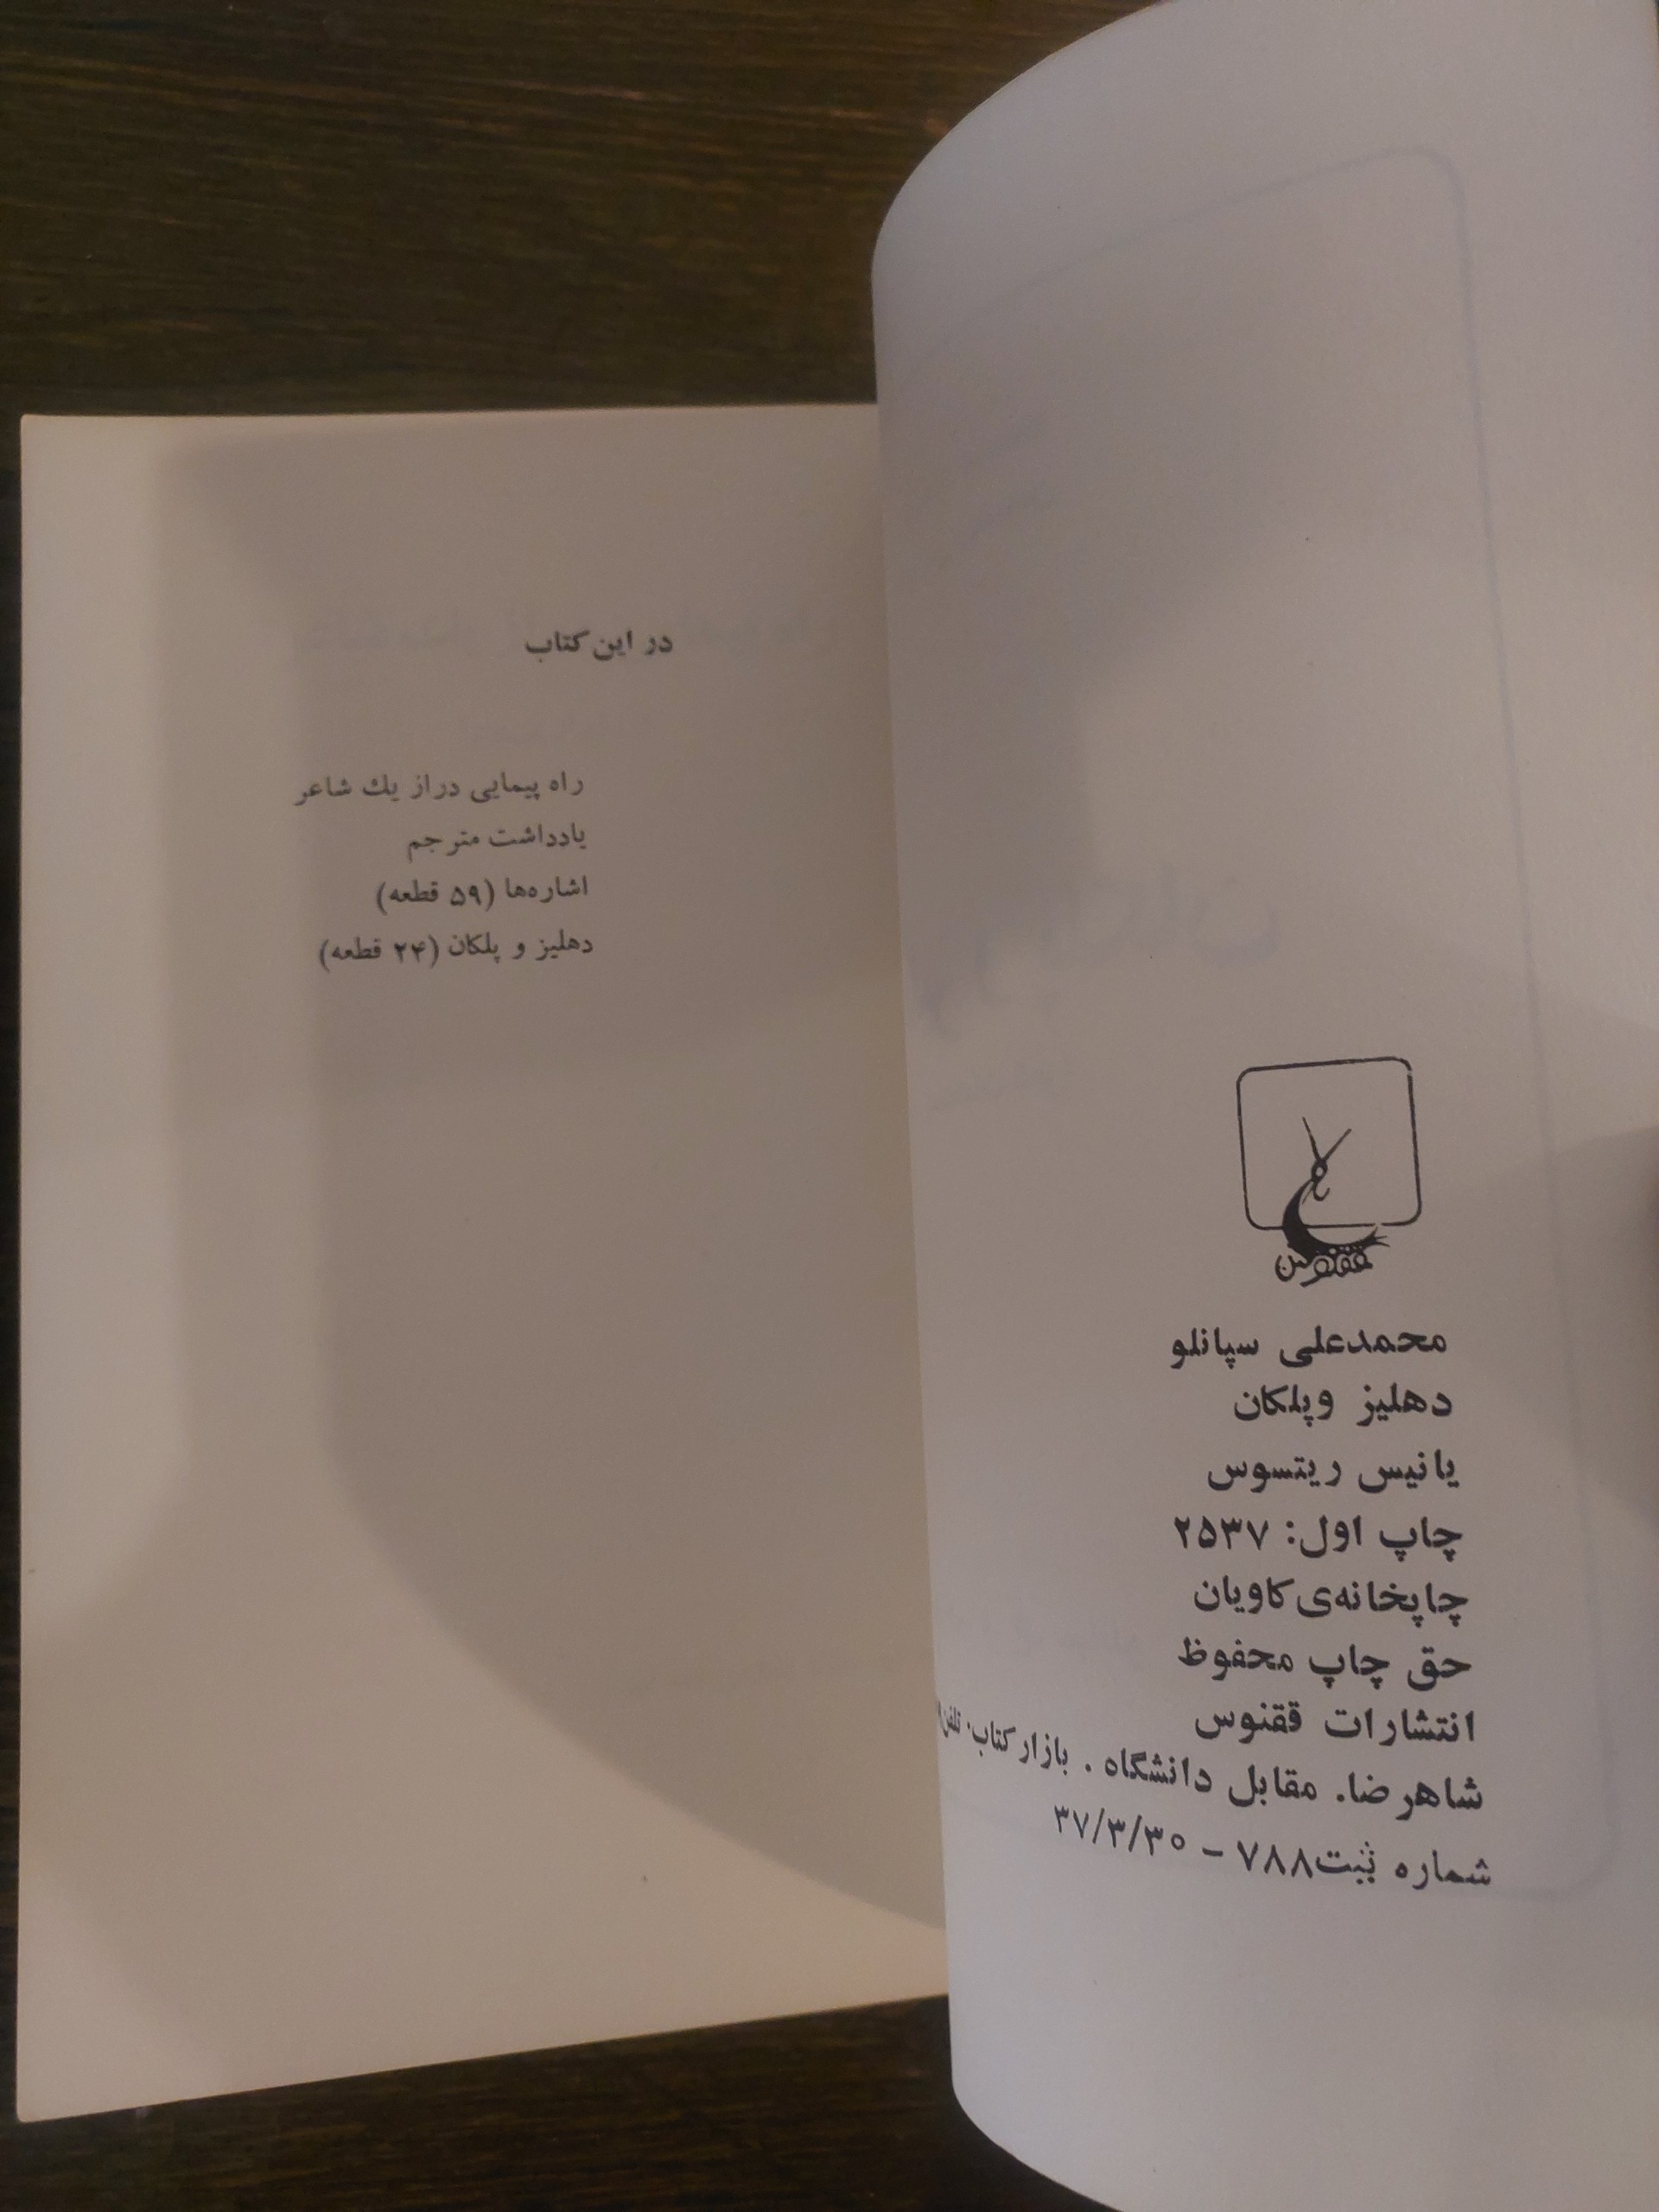 ققنوس
محمدعلی سپانلو
دهلیز و پلکان
یانیس ریتسوس
چاپ اول: ۲۵۳۷
چاپخانه‌ی کاویان
حق چاپ محفوظ
انتشارات ققنوس
شاهرضا. مقابل دانشگاه . بازار کتاب. تلفن
شماره ثبت ۷۸۸ – ۳۷/۳/۳۰
در این کتاب
راه پیمایی دراز یك شاعر
یادداشت مترجم
اشاره‌ها (۵۹ قطعه)
دهلیز و پلکان (۲۴ قطعه)